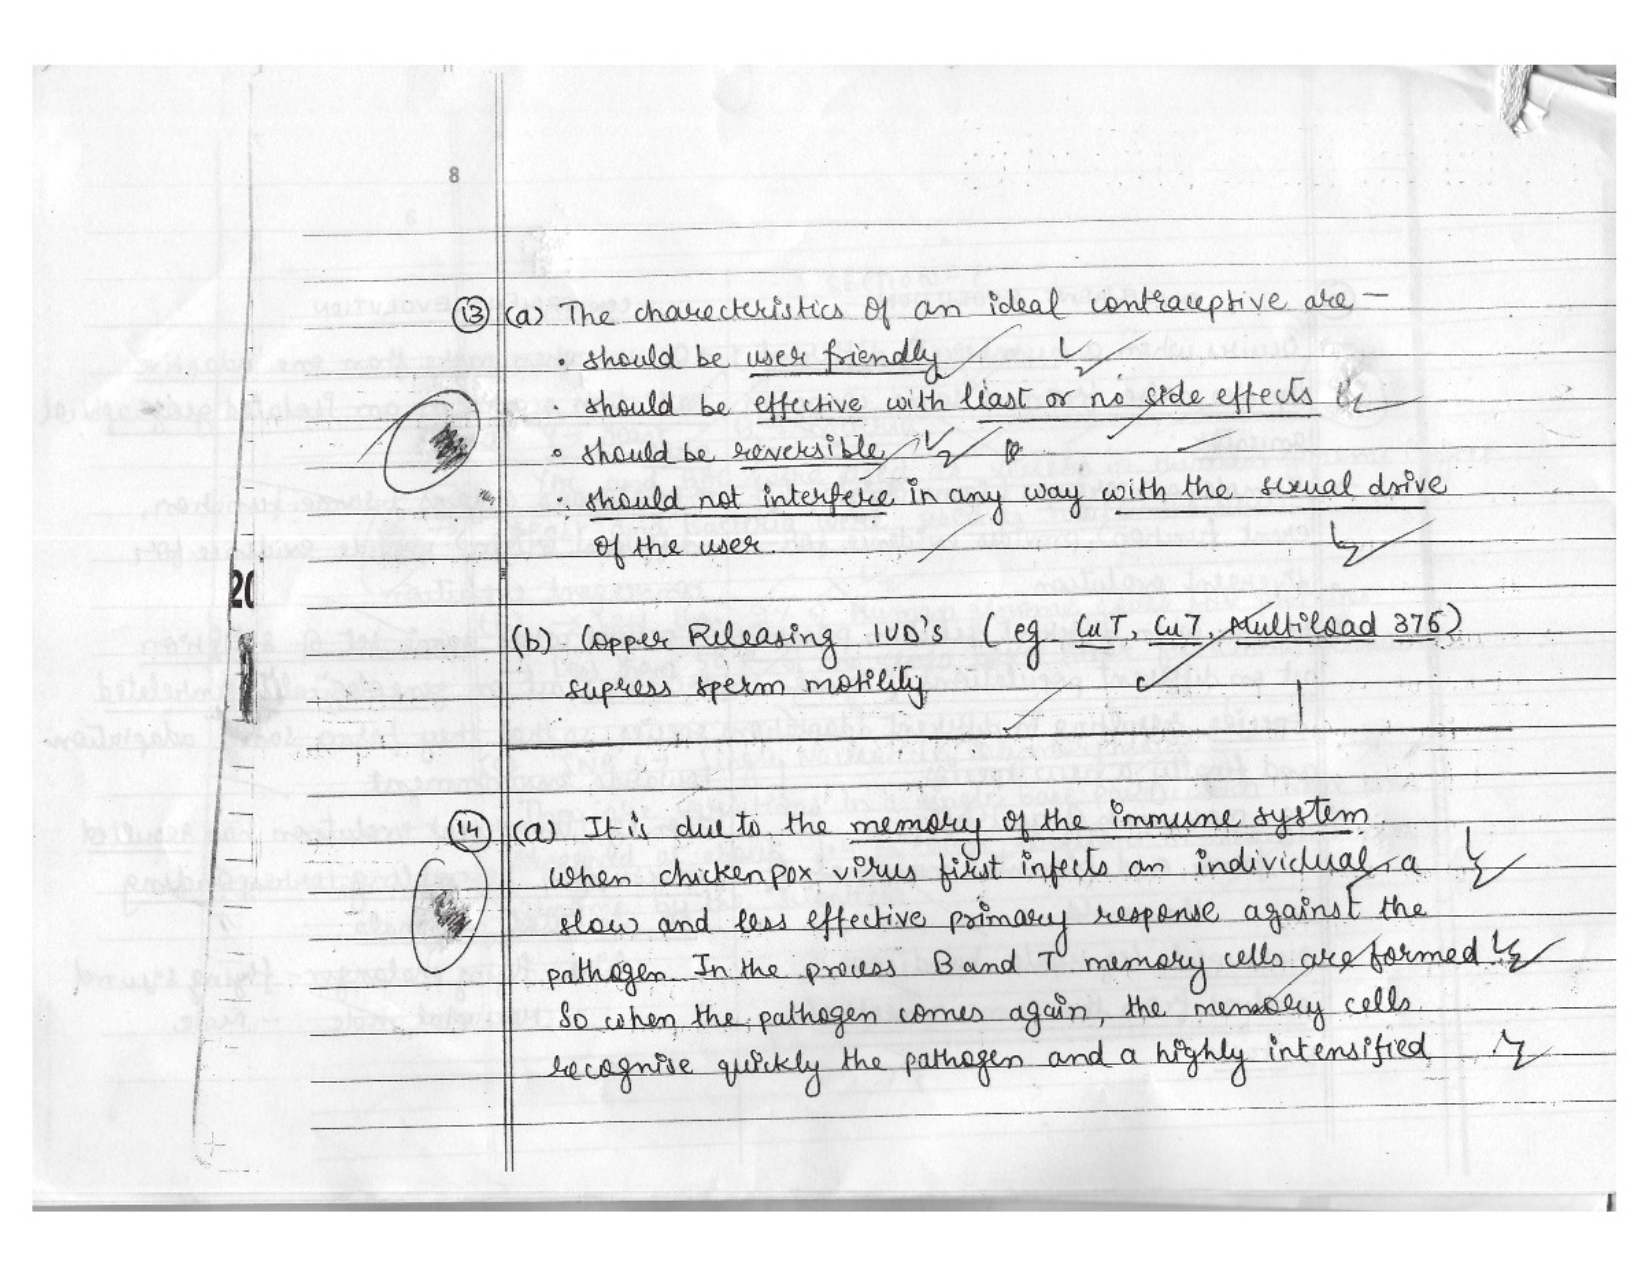 8
(13) (a) The charecteristics of an ideal contraceptive are -
• should be user friendly
• should be effective with least or no side effects
• should be reversible
• should not interfere in any way with the sexual drive
of the user.
20
(b) Copper Releasing IUD's (eg CuT, Cu7, Multiload 375)
supress sperm motility
(14) (a) It is due to the memory of the immune system
when chickenpox virus first infects an individual, a
slow and less effective primary response against the
pathogen. In the process B and T memory cells are formed
So when the pathogen comes again, the memory cells
recognise quickly the pathogen and a highly intensified